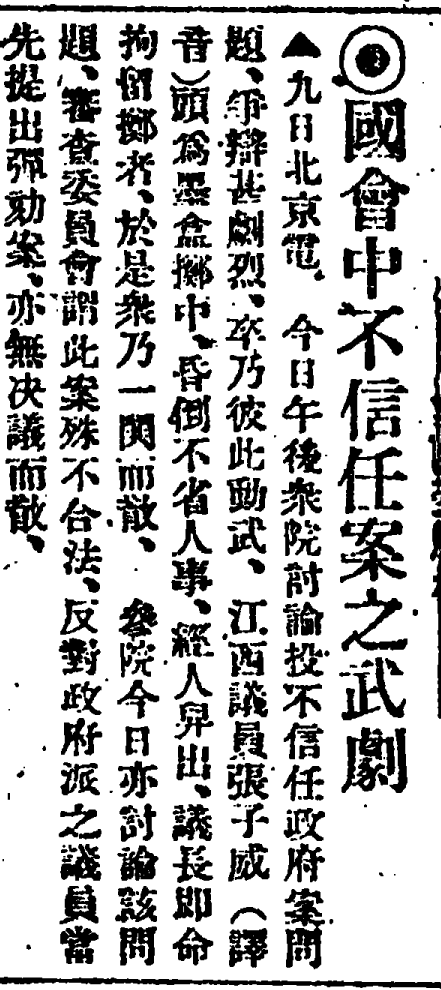 ◉國會中不信任案之武劇
▲九日北京電、今日午後衆院討論投不信任政府案問
題、爭辯甚劇烈、卒乃彼此動武、江西議員張子威（譯
音）頭爲墨盒擲中、昏倒不省人事、經人舁出、議長卽命
拘留擲者、於是衆乃一鬨而散、參院今日亦討論該問
題、審查委員會謂此案殊不合法、反對政府派之議員當
先提出彈劾案、亦無決議而散、